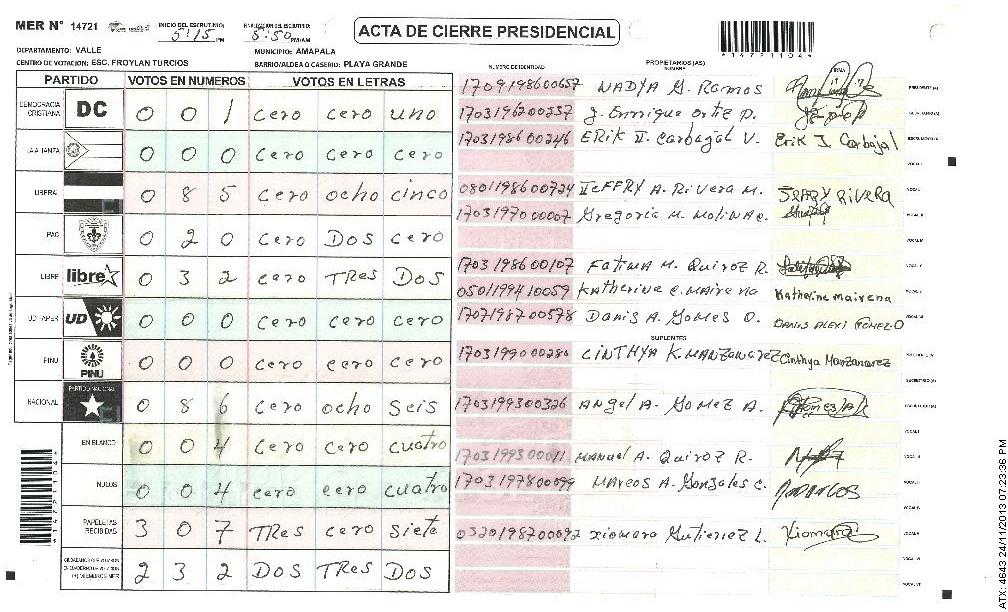 MER N° 14721
INICIO DEL ESCRUTINIO: 5:15 PM
FINALIZACION DEL ESCRUTINIO: 5:50 PM/AM
ACTA DE CIERRE PRESIDENCIAL
*14721104*
DEPARTAMENTO: VALLE
MUNICIPIO: AMAPALA
CENTRO DE VOTACION: ESC. FROYLAN TURCIOS
BARRIO/ALDEA O CASERIO: PLAYA GRANDE
PARTIDO VOTOS EN NUMEROS VOTOS EN LETRAS
DEMOCRACIA CRISTIANA DC 0 0 1 cero cero uno
LA ALIANZA 0 0 0 cero cero cero
LIBERAL 0 8 5 cero ocho cinco
PAC 0 2 0 cero DOS cero
LIBRE libre 0 3 2 cero TRes DOS
UD-FAPER UD 0 0 0 cero cero cero
PINU PINU 0 0 0 cero cero cero
NACIONAL PARTIDO NACIONAL 0 8 6 cero ocho seis
EN BLANCO 0 0 4 cero cero cuatro
NULOS 0 0 4 cero cero cuatro
PAPELETAS RECIBIDAS 3 0 7 TRes cero siete
2 3 2 DOS TRes DOS
NUMERO DE IDENTIDAD
PROPIETARIOS (AS)
NOMBRE
FIRMA
1709198600657 NADYA G. Ramos PRESIDENTE (A)
1703196200357 J. Enrrique Ortiz P. SECRETARIO (A)
1703198600246 ERIK J. Carbajal V. Erik J. Carbajal ESCRUTADOR (A)
VOCAL I
0801198600724 JEFFRY A. RIVERA M. JEFFRY RIVERA VOCAL II
1703197000007 Gregoria M. Molina c. VOCAL III
1703198600107 Fatima M. Quiroz R.
0501199410059 Katherine c. Mairena Katherine mairena
1707198700578 Danis A. Gomes O. DANIS ALEXI GOMEZ O
SUPLENTES
1703199000280 CINTHYA K. MANZANAREZ Cinthya Manzanarez
SECRETARIO (A)
1703199300326 Angel A. Gomez A.
1703199300011 Manuel A. Quiroz R.
1703197800099 Marcos A. Gonzales c. MARCOS
0320198700092 xiomara Gutierrez L. Xiomara
*14721104*
ATX: 4643 24/11/2013 07:23:36 PM